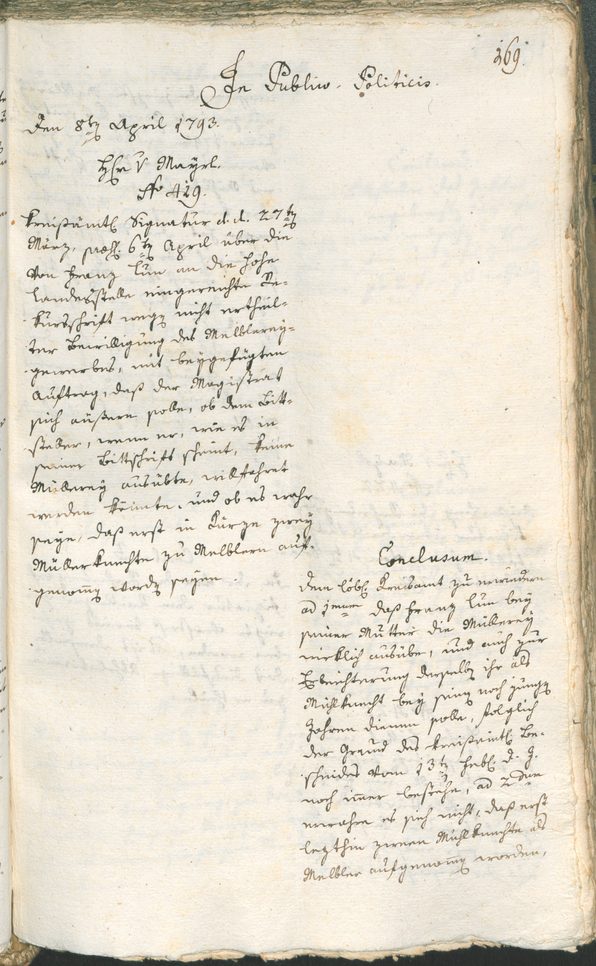 169.
In Publico-Politicis.
Den 8ten April 1793.
H. v. Mayrl.
No 429.
Kreisämtl. Signatur d. d. 27ten
März, præs. 6ten April über die
von Franz Lun an die hohe
Landesstelle eingereichte Re-
kursschrift wegen nicht ertheil-
ter Bewilligung des Melblerey-
gewerbes, mit beygefügten
Auftrag, daß der Magistrat
sich äußern solle, ob dem Bitt-
steller, wenn er, wie es in
seiner Bittschrift scheint, keine
Müllerey ausübte, willfahret
werden könnte, und ob es wahr
seye, daß erst in Kürze zwey
Müllerknechte zu Melblern auf-
genomen worden seyen.
Conclusum.
Dem löbl. Kreisamt zu erwiedern
ad 1mum daß Franz Lun bey
seiner Mutter die Müllerey
wirklich ausübe, und auch zur
Erleichterung derselben ihr als
Mühlknecht bey seinen noch jungen
Jahren dienen solle, folglich
der Grund des kreisämtl. Be-
scheides vom 13ten Febr. d. J.
noch imer bestehe, ad 2dum
erwahre es sich nicht, daß erst
lezthin zween Mühlknechte als
Melbler aufgenomen worden,